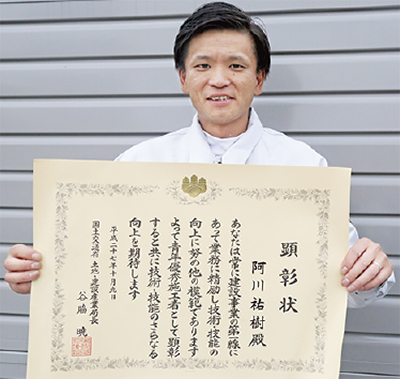 顕彰状
阿川祐樹殿
あなたは常に建設事業の第一線に
あって業務に精励し技術・技能の
向上に努め他の模範であります
よって青年優秀施工者として顕彰
すると共に技術・技能のさらなる
向上を期待します
平成二十七年十月九日
国土交通省 土地・建設産業局長
谷脇 暁